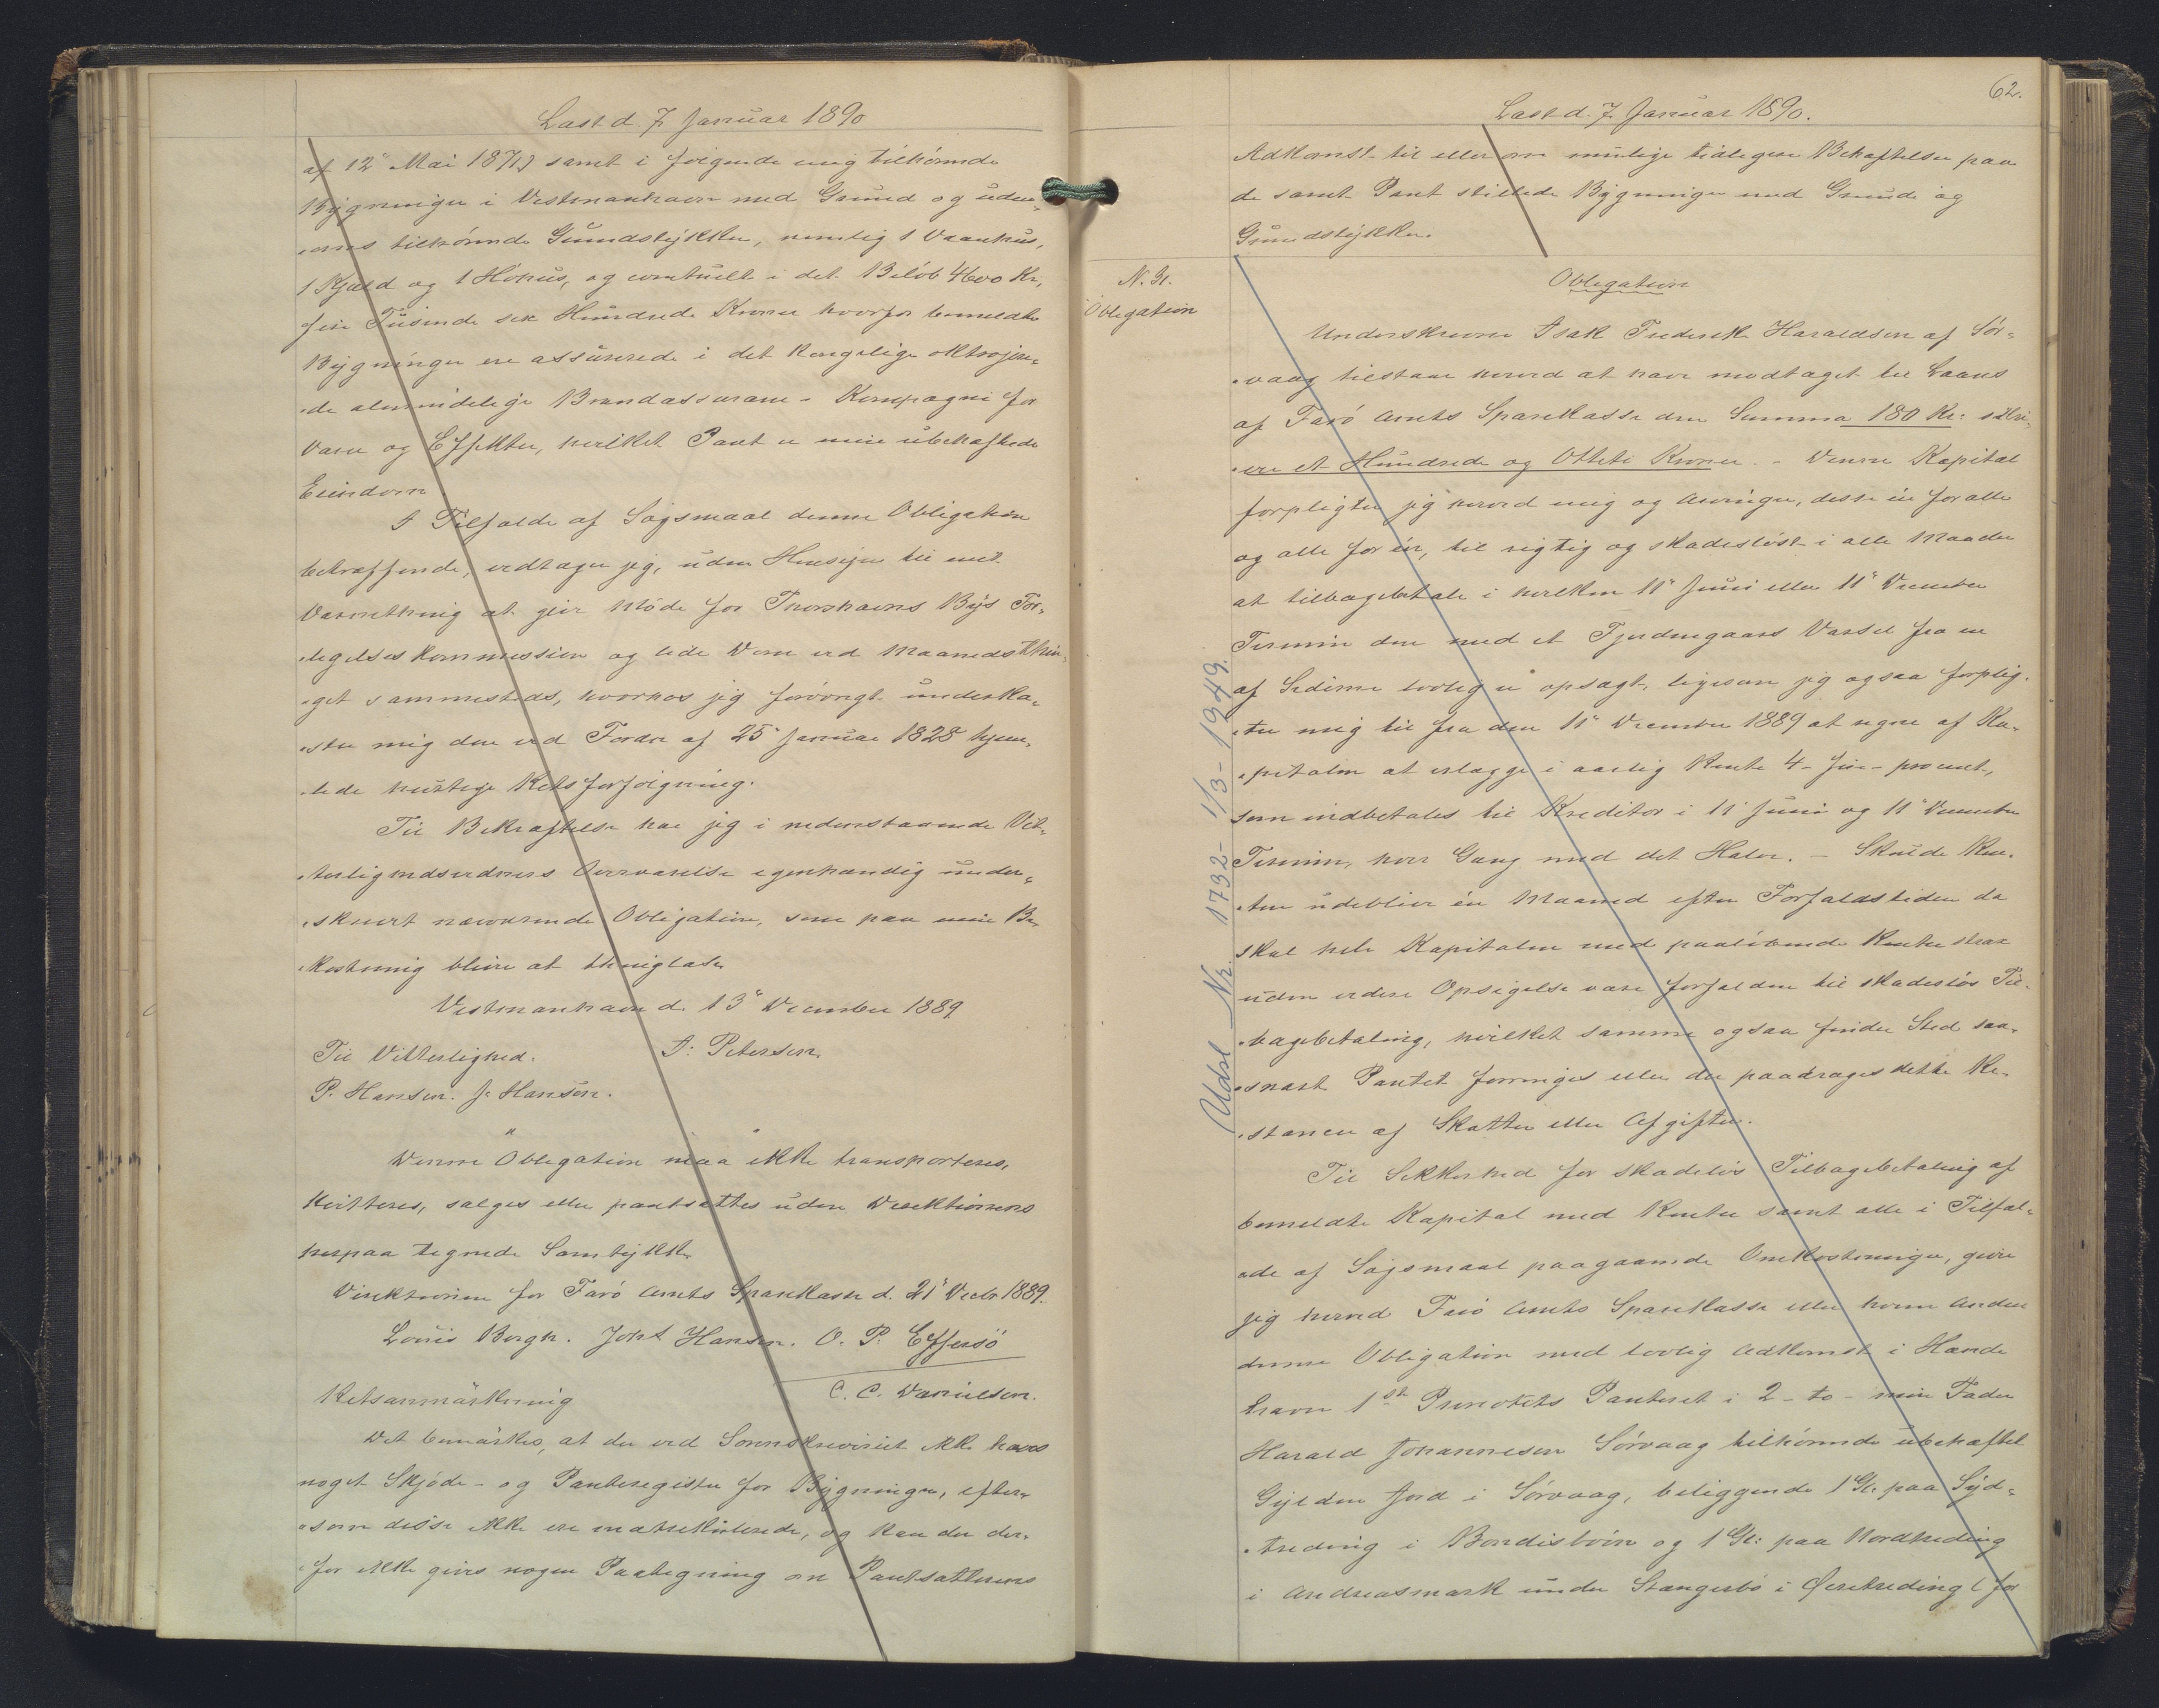 Læst d. 7 Januar 1890
af 12" Mai 1871) samt i følgende mig tilhørende
Bygninger i Vestmanhavn med Grund og uden-
oms tilhørende Grundstykker, nemlig 1 Vaanhus,
1 Kjæld og 1 Høhus, og eventuelt i det Beløb 4600 Kr,
fire Tusinde sex Hundrede Kroner hvorfor bemeldte
Bygninger ere assurerede i det kongelige oktrojere-
de almindelige Brandassurance-Kompagni for
Varer og Effekter, hvilket Pant er min ubehæftede
Eiendom
I Tilfælde af Søgsmaal denne Obligation
betræffende, vedtager jeg, uden Hensyn til mit
Værnething at give Møde for Thorshavns Byes For-
ligelseskommission og lide Dom ved Maanedsthin-
get sammesteds, hvorhos jeg forøvrigt underka-
ster mig den ved Fordn af 25" Januar 1828 hjem-
lede hurtige Retsforfølgning.
Til Bekræftelse har jeg i nedenstaaende Vit-
terlighedsvidners Overværelse egenhændig under-
skrevet nærværende Obligation, som paa min Be-
kostning bliver at thinglæse
Vestmanhavn d. 13" December 1889
Til Vitterlighed. J: Petersen.
P. Hansen. J. Hansen.
Denne Obligation maa ikke transporteres,
kvitteres, sælges eller pantsættes uden Direktionens
herpaa tegnede Samtykke.
Direktionen for Færø Amts Sparekasse d. 21" Decbr 1889.
Louis Bergh. Johs Hansen. O. P. Effersø
C. C. Danielsen.
Retsanmærkning
Det bemærkes, at der ved Sorenskriveriet ikke haves
noget Skjøde- og Panteregister for Bygninger, efter-
som disse ikke ere matrikulerede, og kan der der-
for ikke gives nogen Paategning om Pantsætterens
62.
Læst d. 7 Januar 1890.
Adkomst til eller om mulige tidligere Behæftelser paa
de samt Pant stillede Bygninger med Grunde og
Grundstykker.
N. 31.
Obligation
Obligation
Underskrevne Isak Frederik Haraldsen af Sør-
vaag tilstaar herved at have modtaget til Laans
af Færø Amts Sparekasse den Summa 180 Kr: skri-
ver et Hundrede og Otteti Kroner. - Denne Kapital
forpligter jeg herved mig og Arvinger, disse én for alle
og alle for én, til rigtig og skadesløst i alle Maader
at tilbagebetale i hvilken 11" Juni eller 11" December
Termin den med et Fjerdingaars Varsel fra en
af Siderne lovlig er opsagt, ligesom jeg ogsaa forplig-
ter mig til fra den 11" December 1889 at regne af Ka-
pitalen at erlægge i aarlig Rente 4 - fire - procent,
som indbetales til Kreditor i 11" Juni og 11" December
Termin, hver Gang med det Halve. - Skulde Ren-
ten udeblive én Maaned efter Forfaldstiden da
skal hele Kapitalen med paaløbende Renter strax
uden videre Opsigelse være forfalden til skadesløs Til-
bagebetaling, hvilket samme ogsaa finder Sted saa-
snart Pantet forringes eller der paadrages dette Re-
stancer af Skatter eller Afgifter.
Til Sikkerhed for skadesløs Tilbagebetaling af
bemeldte Kapital med Renter samt alle i Tilfæl-
de af Søgsmaal paagaaende Omkostninger, giver
jeg herved Færø Amts Sparekasse eller hvem anden
denne Obligation med lovlig Adkomst i Hænde
havn 1ste Prioritets Panteret i 2 - to - min Fader
Harald Johannesen Sørvaag tilhørende ubehæftet
Gylden Jord i Sørvaag, beliggende 1 Gl. paa Syd-
treding i Bondisbøin og 1 Gl: paa Nordtreding
i Andreasmark under Stangerbø i Øvretreding (for
Udsl Nr. 1732 - 1/3 - 1949.